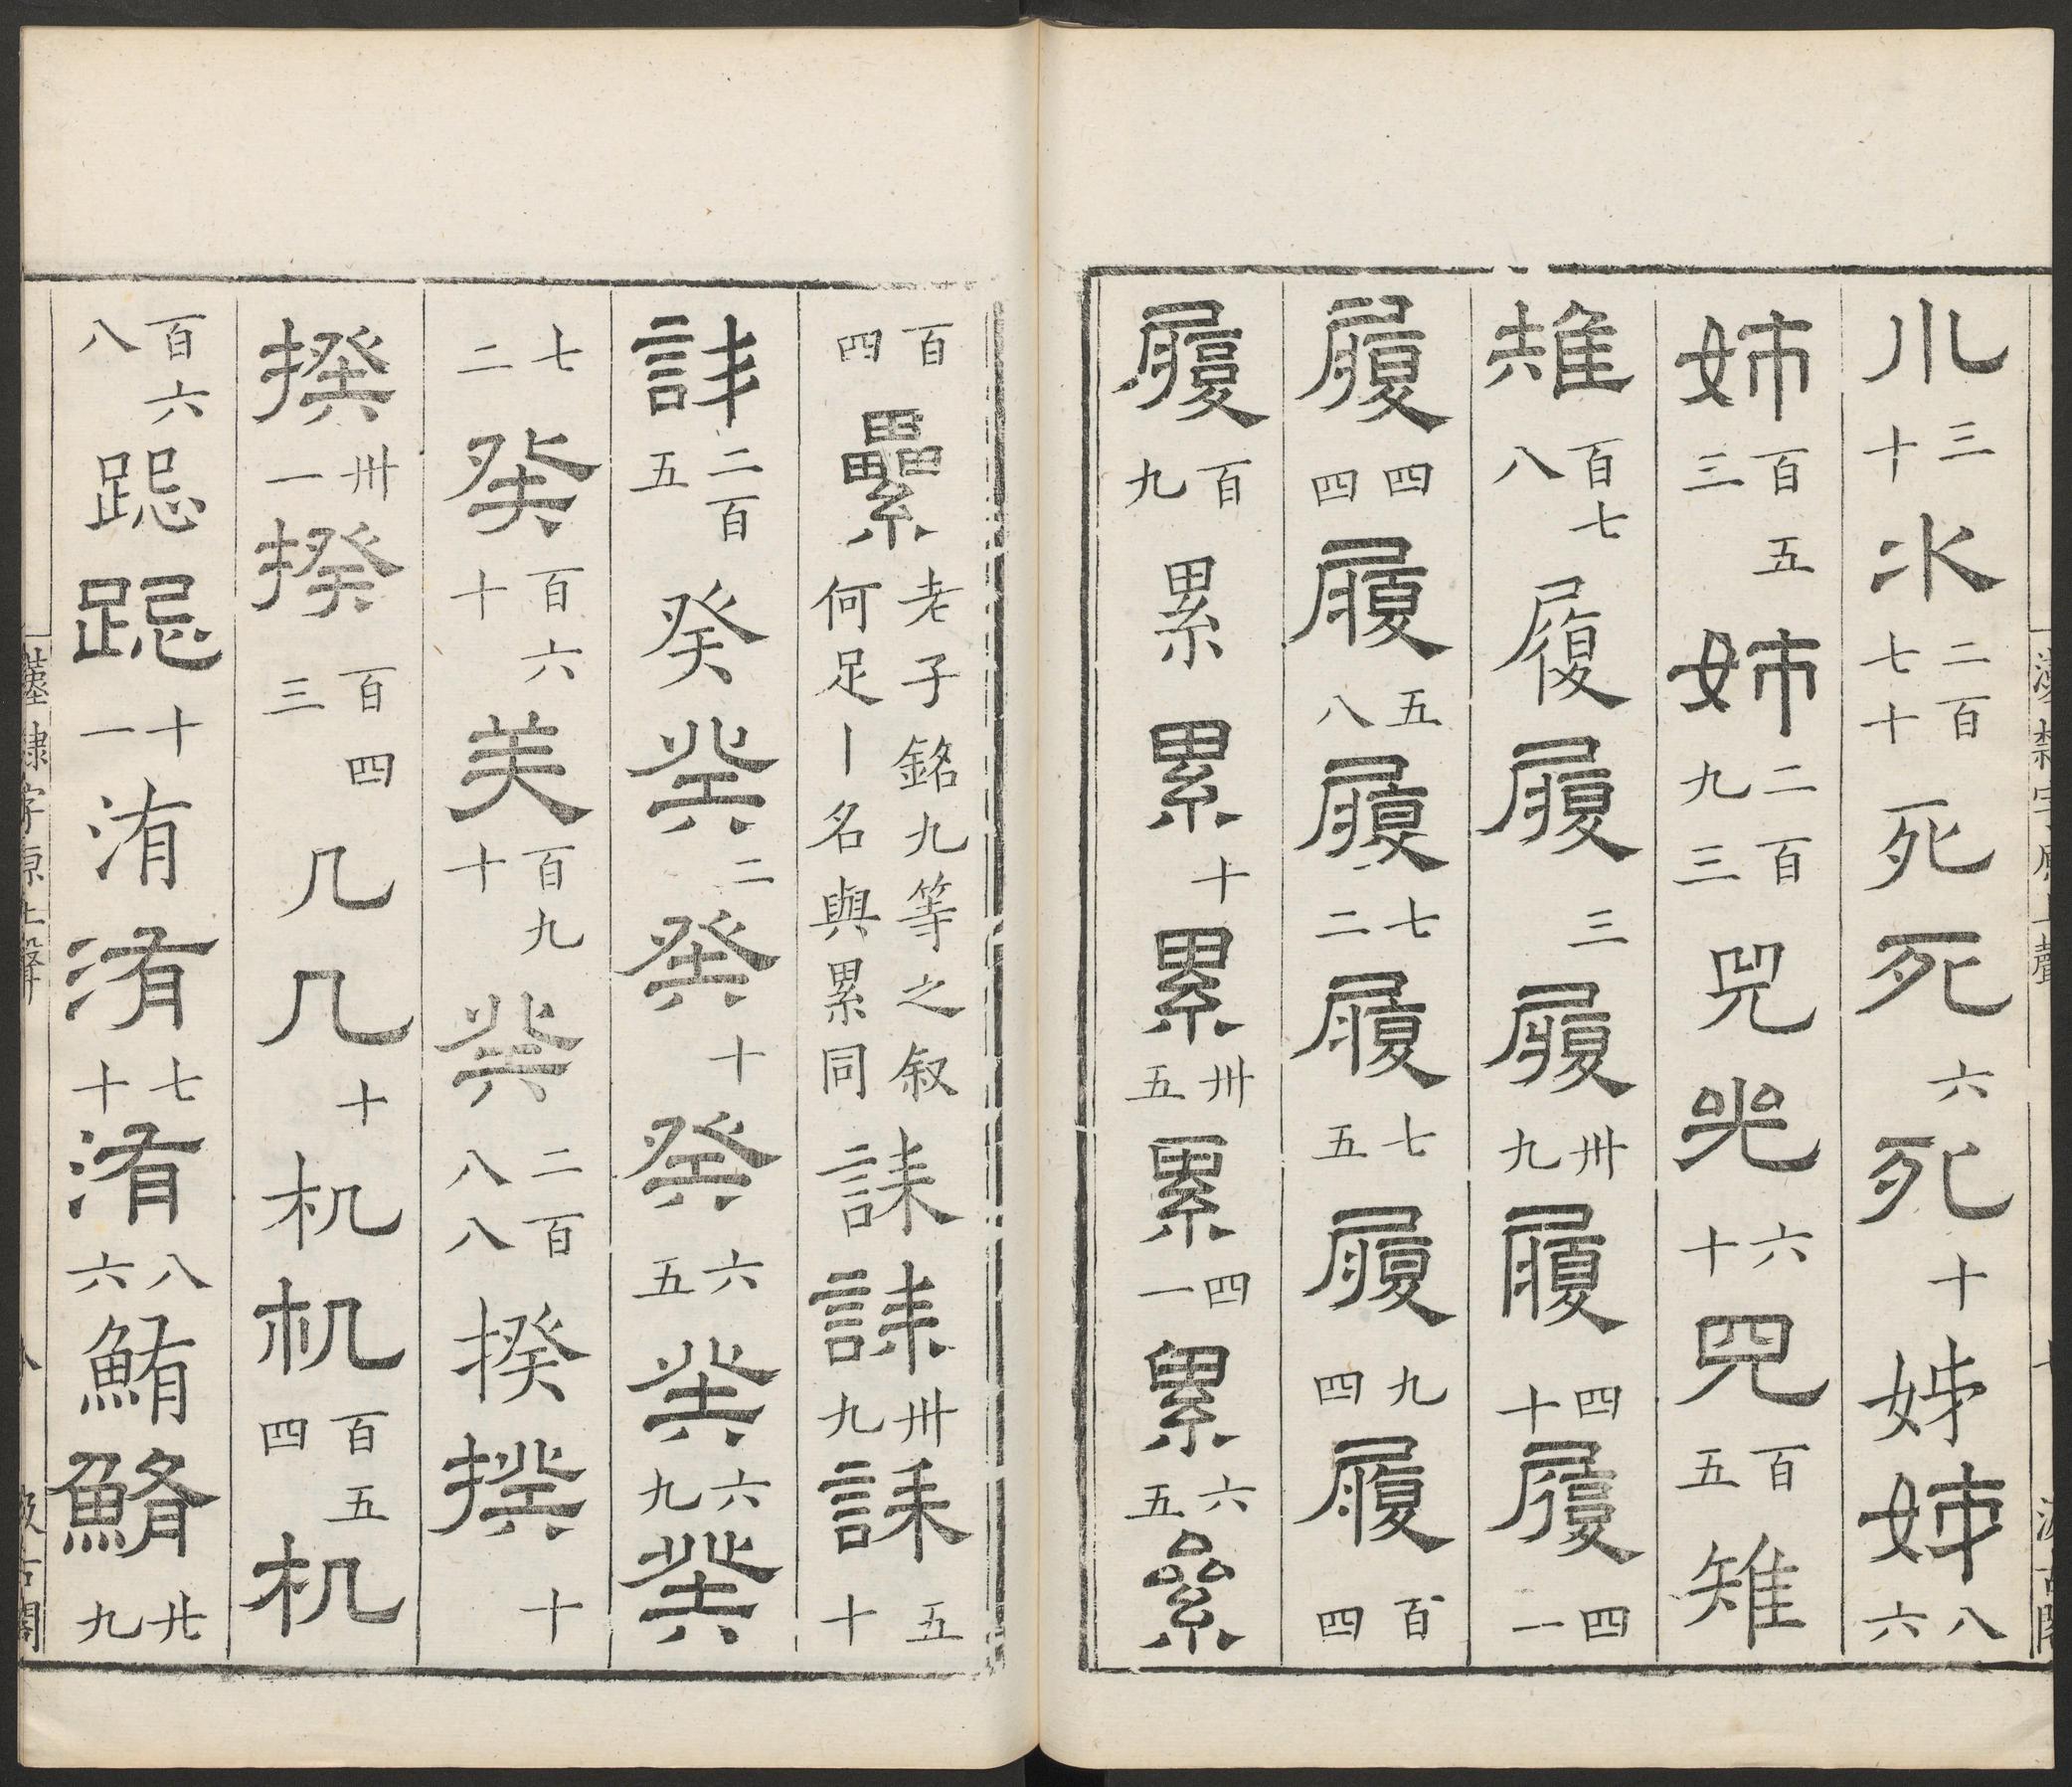 水三十水二百七十死死六死十姊姊八六
姊百五三姊二百九三兕兕六十兕百五雉
雉百七八履履三履卅九履四十履四一
履四四履五八履七二履七五履九四履百四
履百九累累十累卅五累四一累六五絫
百四纍老子銘九等之叙何足丨名與累同誄誄卅九誄五十
誄二百五癸癸二癸十癸六五癸六九癸
七二癸百六十癸百九十癸二百八八揆揆十
揆卅一揆百四三几几十机机百五四机
百六八跽跽十一洧洧七十洧八六鮪鮪廿九
漢隸字原上聲
汲古閣